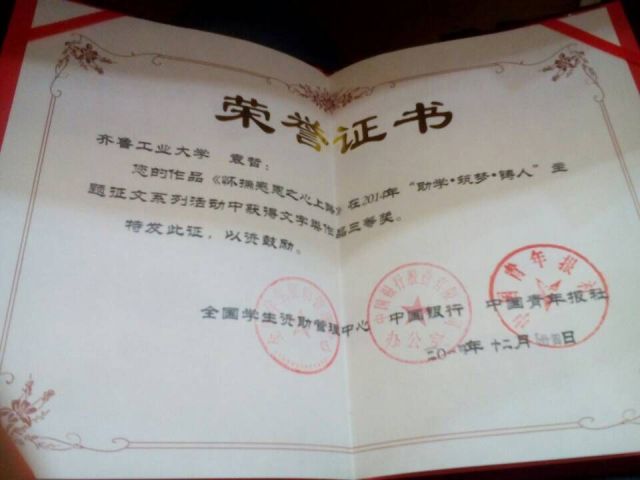 荣誉证书
齐鲁工业大学 袁哲：
您的作品《怀揣感恩之心上路》在2014年“助学·筑梦·铸人”主
题征文系列活动中获得文字类作品三等奖。
特发此证，以资鼓励。
全国学生资助管理中心 中国银行 中国青年报社
二〇一四年十二月 日
办公室